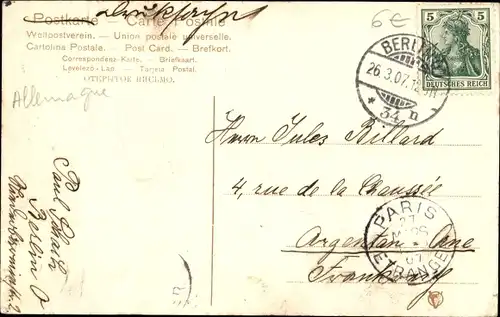 Drucksache
Postkarte Carte Postale
Weltpostverein. – Union postale universelle.
Cartolina Postale. – Post Card. – Brefkort.
Correspondenz-Karte. – Briefkaart.
Levelező-Lap. – Tarjeta Postal.
ОТКРЫТОЕ ПИСЬМО.
Allemagne
6 €
5 5
DEUTSCHES REICH
BERLIN
26.3.07.12
* 34 n
Herrn Jules Billard
4, rue de la Chaussée
Argentan Orne
Frankreich
PARIS
27
07
ETRANGER
Paul
Berlin O